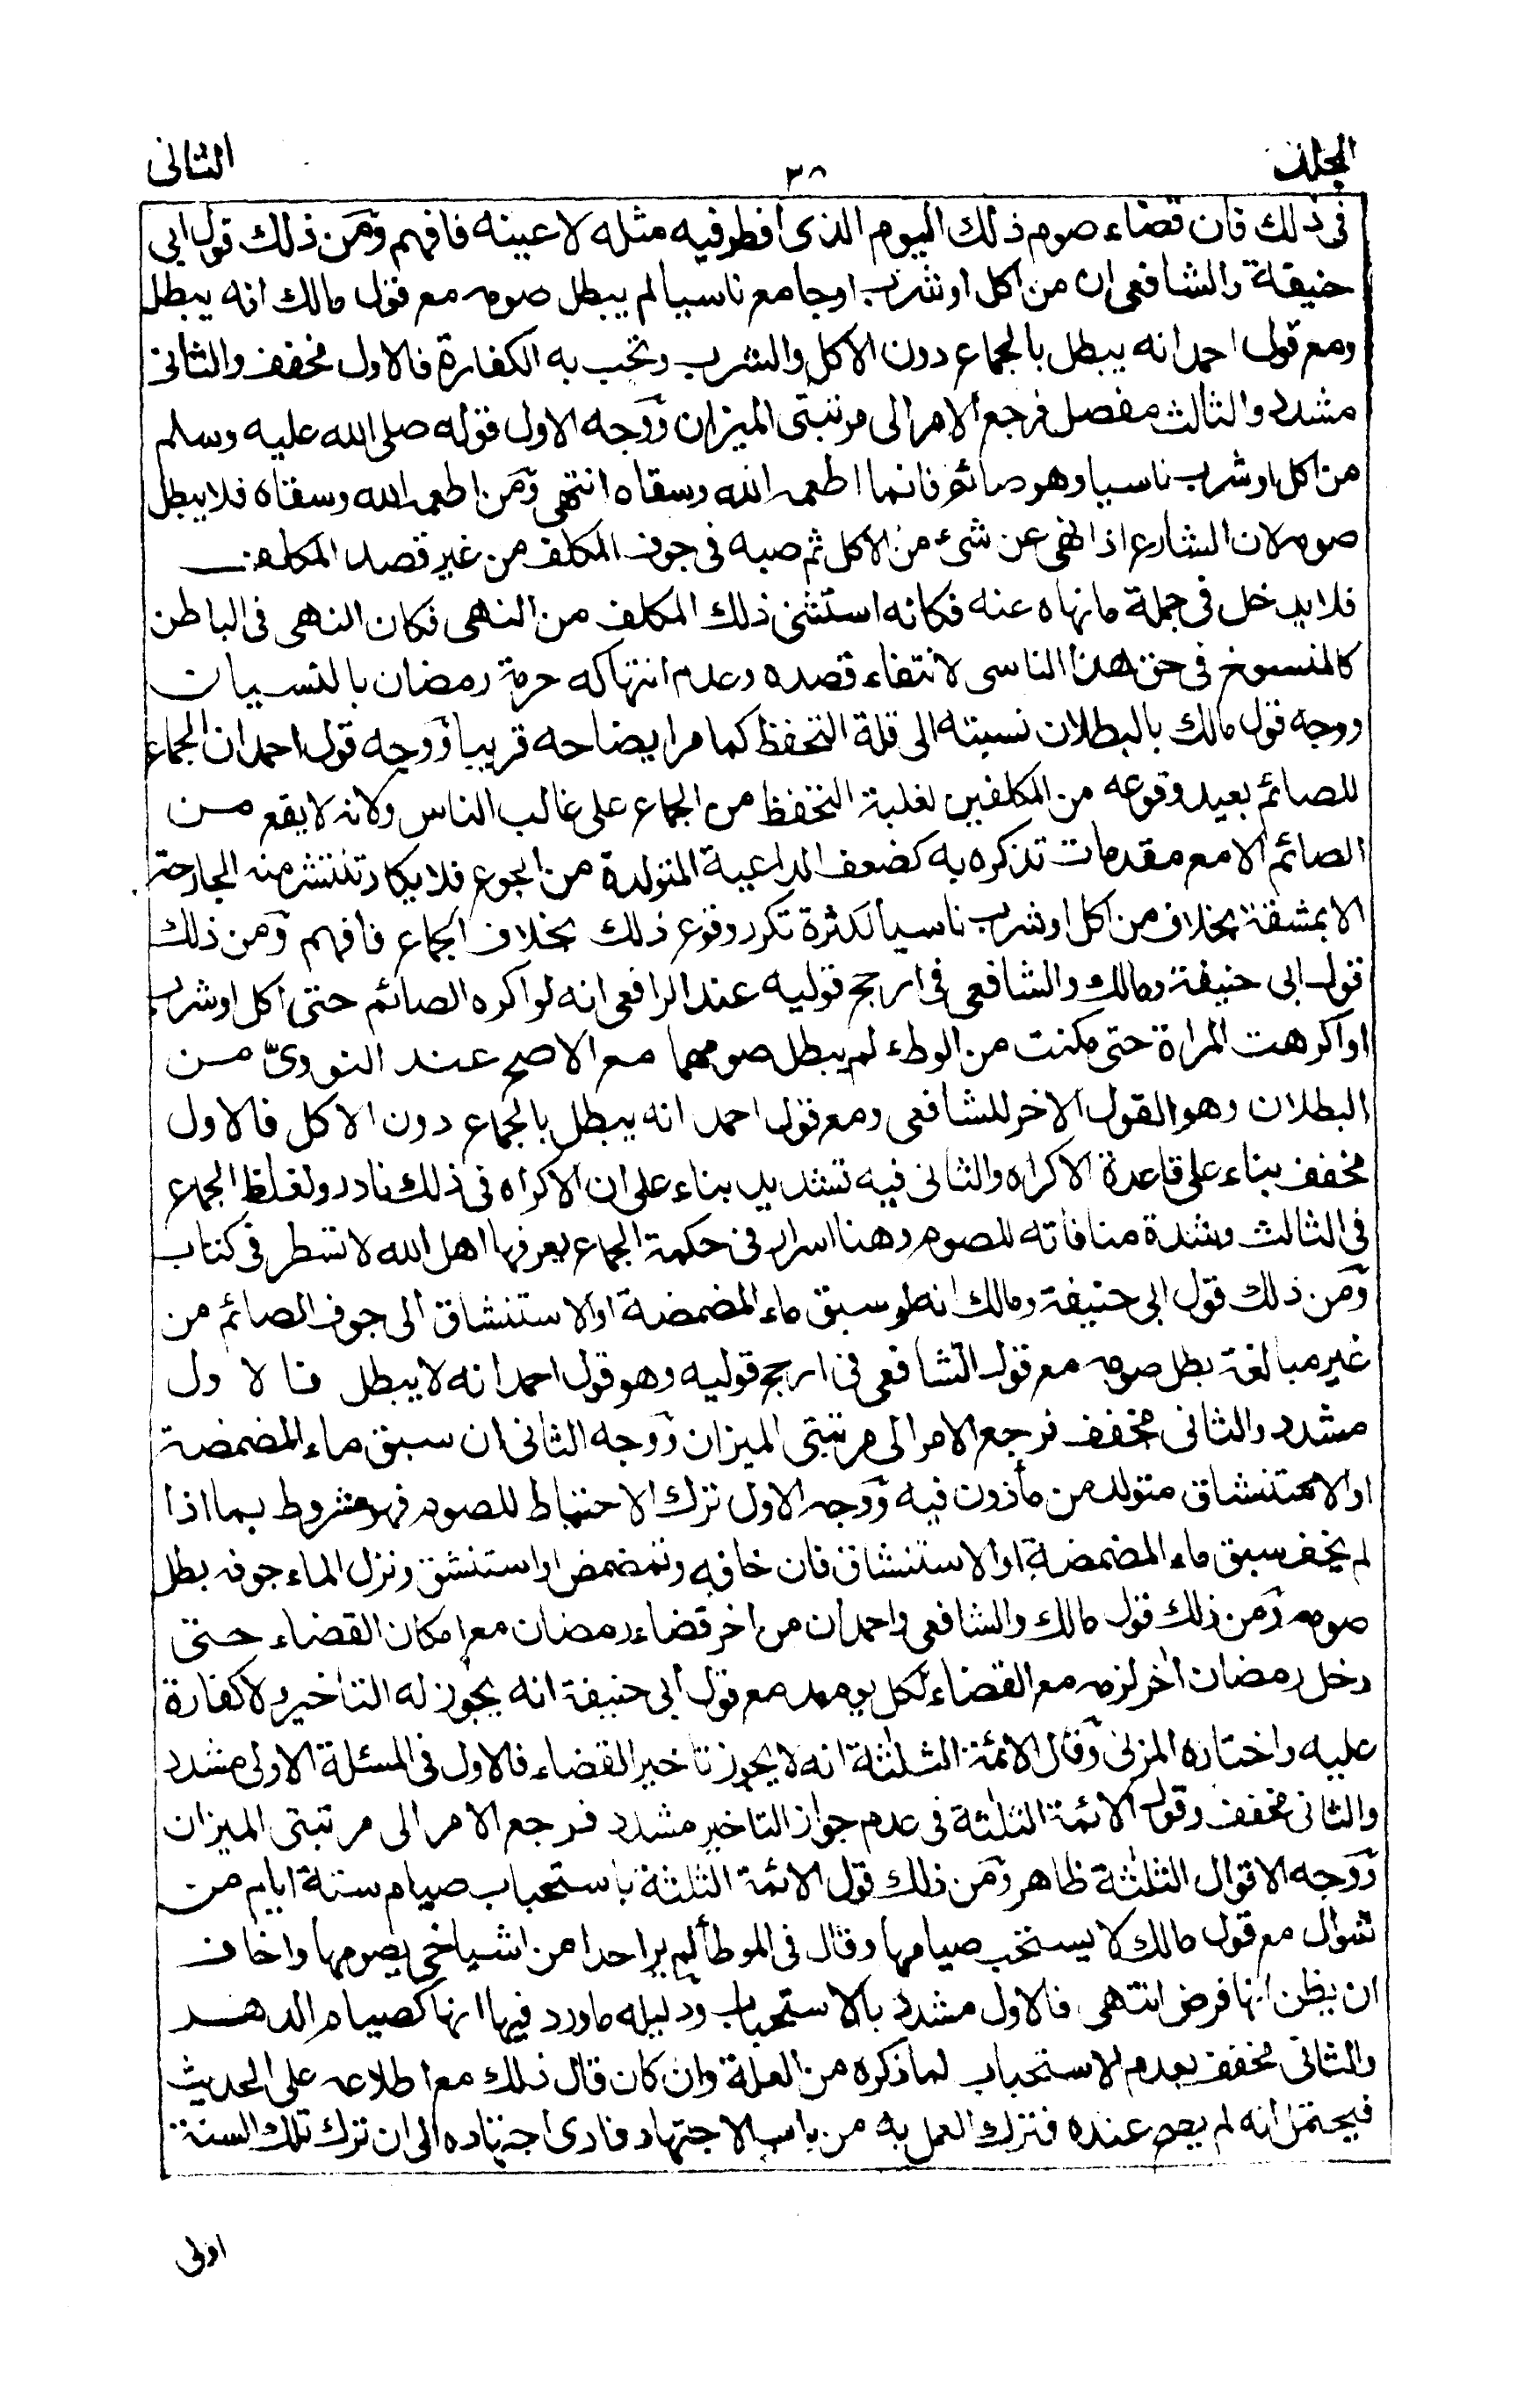 الجلد ٣٨ الثانى
فى ذلك فان قضاء صوم ذلك اليوم الذى افطر فيه مثله لا عينه فافهم ومن ذلك قول ابى
حنيفة والشافعى ان من اكل او شرب او جامع ناسيا لم يبطل صومه مع قول مالك انه يبطل
ومع قول احمد انه يبطل بالجماع دون الاكل والشرب وتجب به الكفارة فالاول مخفف والثانى
مشدد والثالث مفصل فرجع الامر الى مرتبتى الميزان ووجه الاول قوله صلى الله عليه وسلم
من اكل او شرب ناسيا وهو صائم فانما اطعمه الله وسقاه انتهى ومن اطعمه الله وسقاه فلا يبطل
صومه لان الشارع اذا نهى عن شىء من الاكل ثم صبه فى جوف المكلف من غير قصد المكلف
فلا يدخل فى جملة ما نهاه عنه فكانه استثنى ذلك المكلف من النهى فكان النهى فى الباطن
كالمنسوخ فى حق هذا الناسى لانتفاء قصده وعدم انتهاكه حرمة رمضان بالنسيان
ووجه قول مالك بالبطلان نسبته الى قلة التحفظ كما مر ايضاحه قريبا ووجه قول احمد ان الجماع
للصائم بعيد وقوعه من المكلفين لغلبة التحفظ من الجماع على غالب الناس ولانه لا يقع من
الصائم الا مع مقدمات تذكره به كضعف الداعية المتولدة من الجوع فلا يكاد تنتشر منه الجارحة
الا بمشقة بخلاف من اكل او شرب ناسيا لكثرة تكرر وقوع ذلك بخلاف الجماع فافهم ومن ذلك
قول ابى حنيفة ومالك والشافعى فى ارجح قوليه عند الرافعى انه لو اكره الصائم حتى اكل او شرب
او اكرهت المراة حتى مكنت من الوطء لم يبطل صومهما مع الاصح عند النووىّ من
البطلان وهو القول الاخر للشافعى ومع قول احمد انه يبطل بالجماع دون الاكل فالاول
مخفف بناء على قاعدة الاكراه والثانى فيه تشديد بناء على ان الاكراه فى ذلك نادر ولغلظ الجماع
فى الثالث وشدة منافاته للصوم وهنا اسرار فى حكمة الجماع يعرفها اهل الله لا تسطر فى كتاب
ومن ذلك قول ابى حنيفة ومالك انه لو سبق ماء المضمضة او الاستنشاق الى جوف الصائم من
غير مبالغة بطل صومه مع قول الشافعى فى ارجح قوليه وهو قول احمد انه لا يبطل فالاول
مشدد والثانى مخفف فرجع الامر الى مرتبتى الميزان ووجه الثانى ان سبق ماء المضمضة
او الاستنشاق متولد من مأذون فيه ووجه الاول ترك الاحتياط للصوم فهو مشروط بما اذا
لم يخف سبق ماء المضمضة او الاستنشاق فان خافه وتمضمض او استنشق ونزل الماء جوفه بطل
صومه ومن ذلك قول مالك والشافعى واحمد ان من اخر قضاء رمضان مع امكان القضاء حتى
دخل رمضان اخر لزمه مع القضاء لكل يوم مد مع قول ابى حنيفة انه يجوز له التاخير ولا كفارة
عليه واختاره المزنى وقال الائمة الثلثة انه لا يجوز تاخير القضاء فالاول فى المسئلة الاولى مشدد
والثانى مخفف وقول الائمة الثلثة فى عدم جواز التاخير مشدد فرجع الامر الى مرتبتى الميزان
ووجه الاقوال الثلثة ظاهر ومن ذلك قول الائمة الثلثة باستحباب صيام ستة ايام من
شوال مع قول مالك لا يستحب صيامها وقال فى الموطأ لم ير احدا من اشياخى يصومها واخاف
ان يظن انها فرض انتهى فالاول مشدد بالاستحباب ودليله ما ورد فيها انها كصيام الدهر
والثانى مخفف بعدم الاستحباب لما ذكره من العلة وان كان قال ذلك مع اطلاعه على الحديث
فيحتمل انه لم يصح عنده فترك العمل به من باب الاجتهاد فادى اجتهاده الى ان ترك تلك السنة
اولى